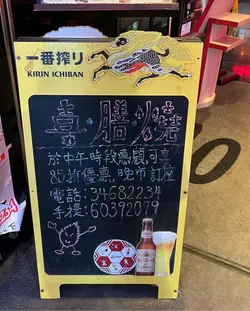 一番搾り
KIRIN ICHIBAN
喜·膳·燒
於中午時段惠顧可享
85折優惠,晚市訂座
電話:34682234
手提:60392079